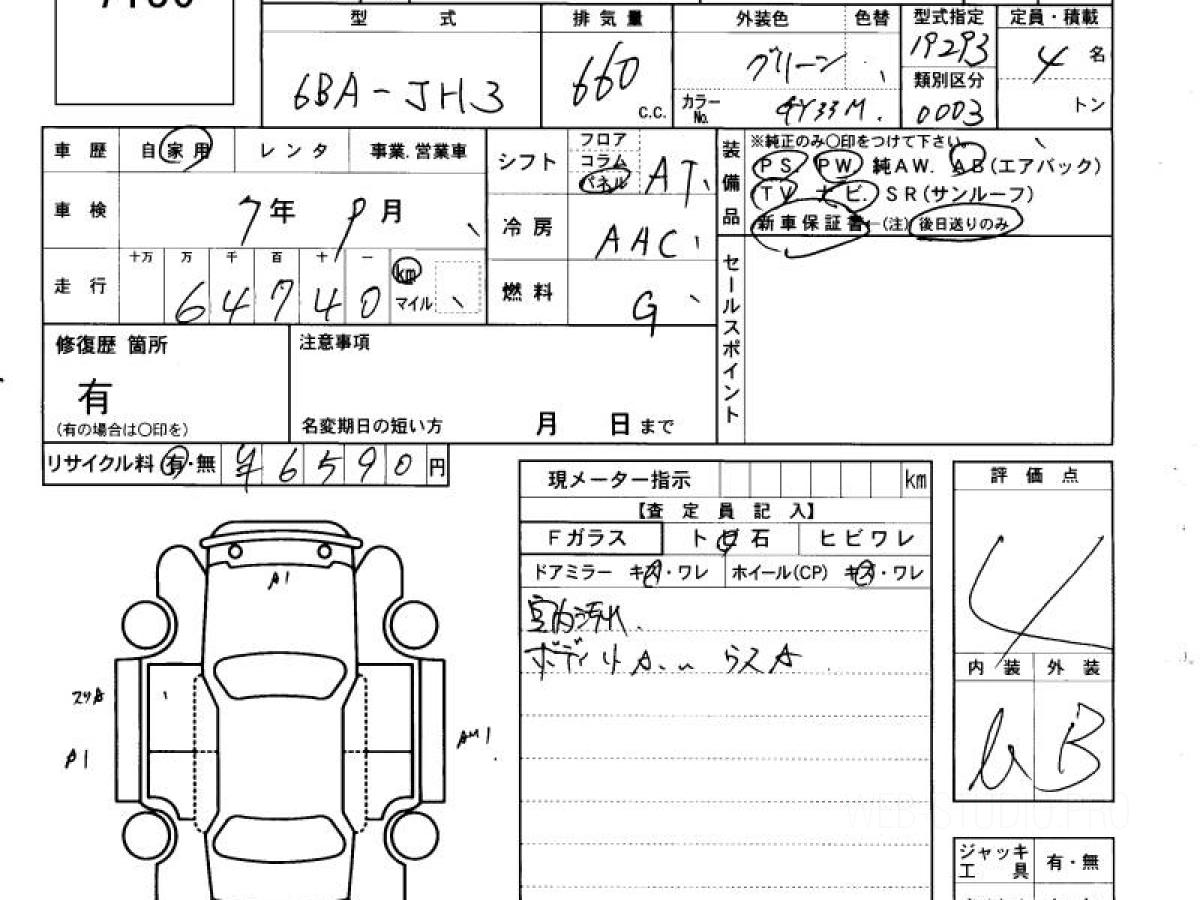 型 式 排気量 外装色 色替 型式指定 定員・積載
6BA-JH3 660 c.c. グリーン 19293 4 名
カラーNo. 類別区分 0003 トン
車歴 自家用 レンタ 事業.営業車
車検 7年 9月
走行 十万 万 千 百 十 一
64740 km マイル
シフト フロア コラム パネル AT
冷房 AAC
燃料 G
装備品 ※純正のみ〇印をつけて下さい。
PS. PW 純AW. AB(エアバック)
TV ナビ. SR(サンルーフ)
新車保証書←(注) 後日送りのみ
セールスポイント
修復歴 箇所
有
(有の場合は〇印を)
注意事項
名変期日の短い方 月 日まで
リサイクル料 有・無 ¥6590円
現メーター指示 km
【査定員記入】
Fガラス トビ石 ヒビワレ
ドアミラー キズ・ワレ ホイール(CP) キズ・ワレ
室内汚れ.
評価点
4
内装 外装
B
A1
スリA
A1
ジャッキ 有・無
工具
WEB-STUDIO.PRO